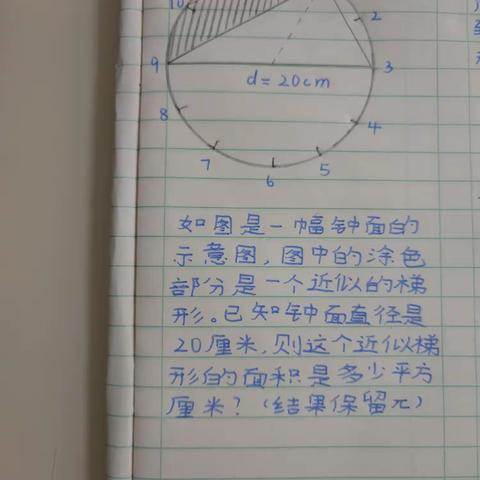 10
2
9
3
d=20cm
8
4
7
5
6
如图是一幅钟面的
示意图,图中的涂色
部分是一个近似的梯
形。已知钟面直径是
20厘米,则这个近似梯
形的面积是多少平方
厘米?(结果保留π)